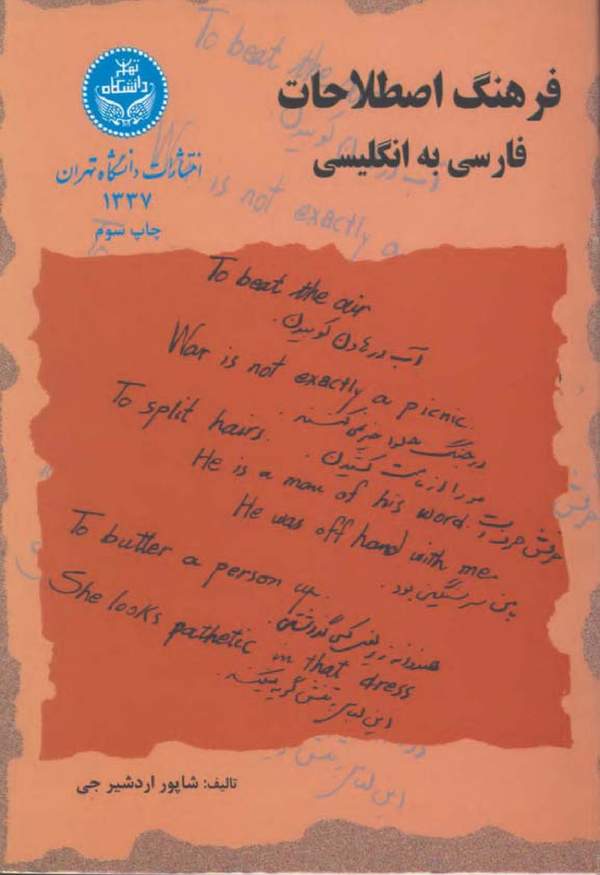 فرهنگ اصطلاحات
فارسی به انگلیسی
تهران
دانشگاه
انتشارات دانشگاه تهران
۱۳۳۷
چاپ سوم
To beat the air
آب در هاون کوبیدن.
War is not exactly a picnic.
در جنگ حلوا خیر نمی کنند.
To split hairs.
مو را از ماست کشیدن.
He is a man of his word.
حرفش حرف است
He was off hand with me.
با من سر سنگین بود.
To butter a person up.
هندوانه زیر بغل کسی گذاشتن.
She looks pathetic in that dress
این لباس به تنش گریه میکند.
تالیف: شاپور اردشیر جی